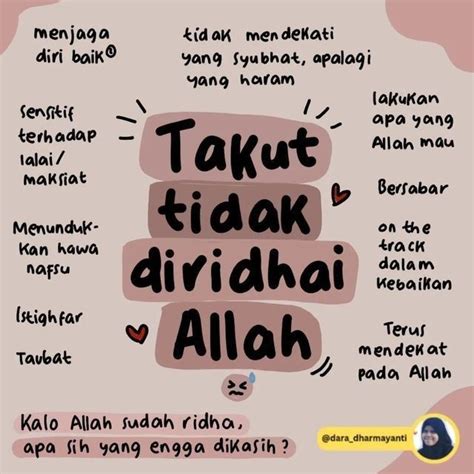 menjaga
diri baik²
tidak mendekati
yang syubhat, apalagi
yang haram
sensitif
terhadap
lalai/
maksiat
lakukan
apa yang
Allah mau
Takut
tidak
diridhai
Allah
Bersabar
Menunduk-
kan hawa
nafsu
on the
track
dalam
kebaikan
Istighfar
Taubat
Terus
mendekat
pada Allah
Kalo Allah sudah ridha,
apa sih yang engga dikasih?
@dara_dharmayanti